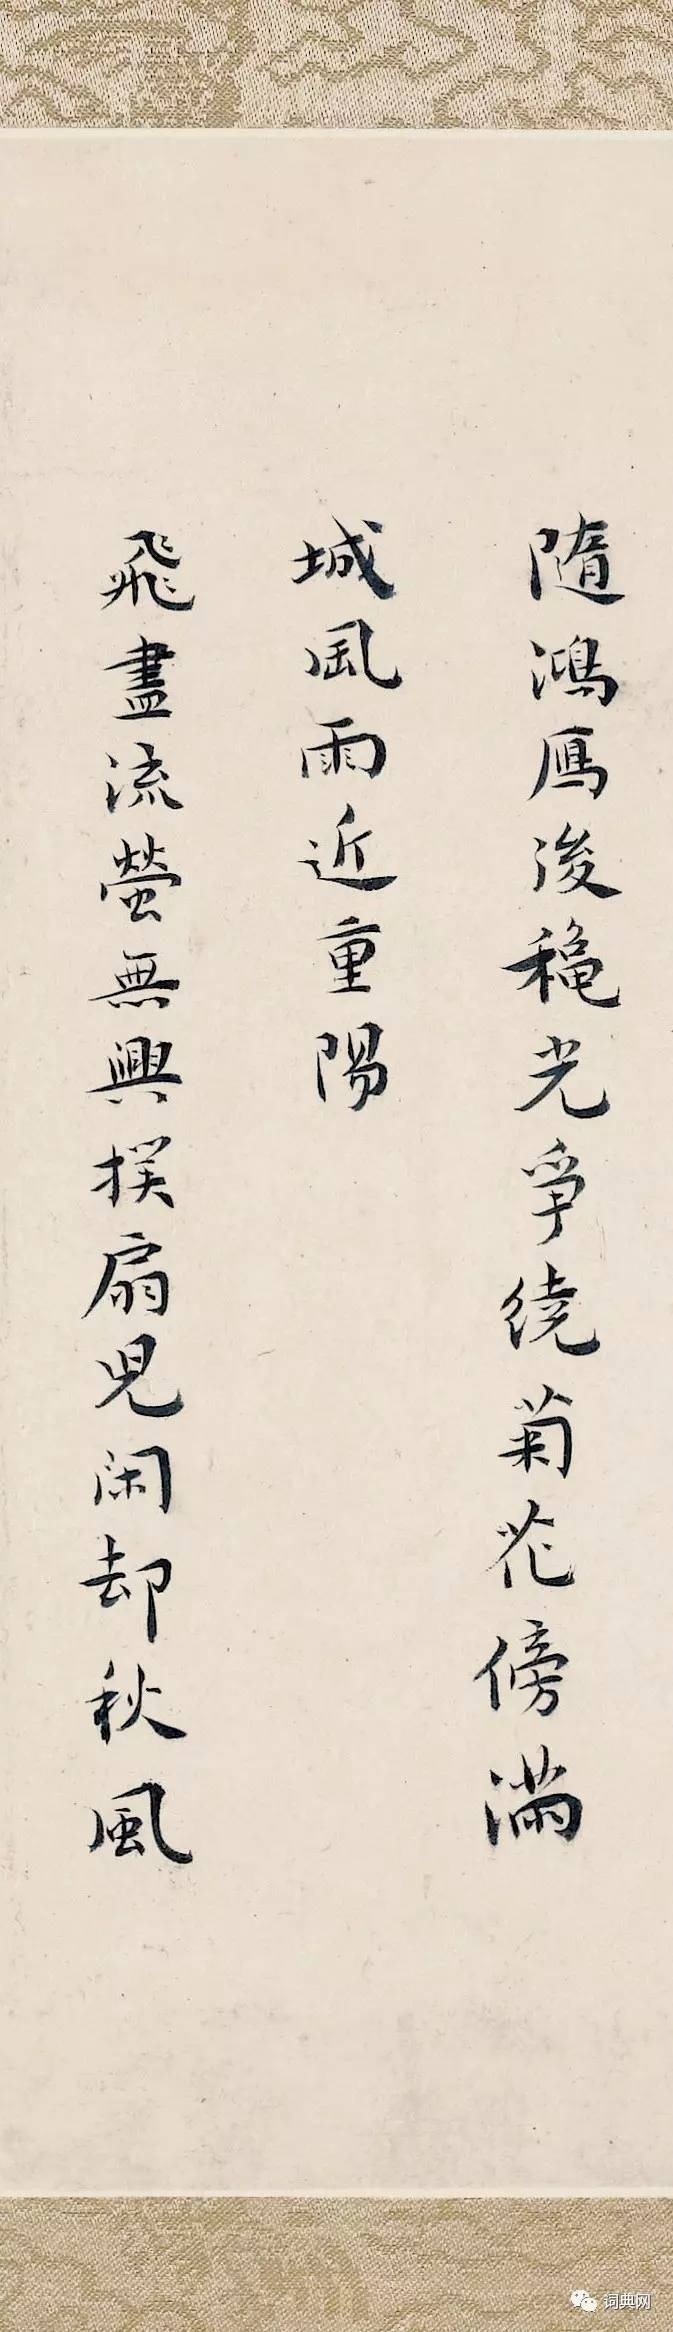 隨鴻鴈後穐光爭繞菊花傍滿
城風雨近重陽
飛盡流螢無興撲扇兒閑却秋風
词典网